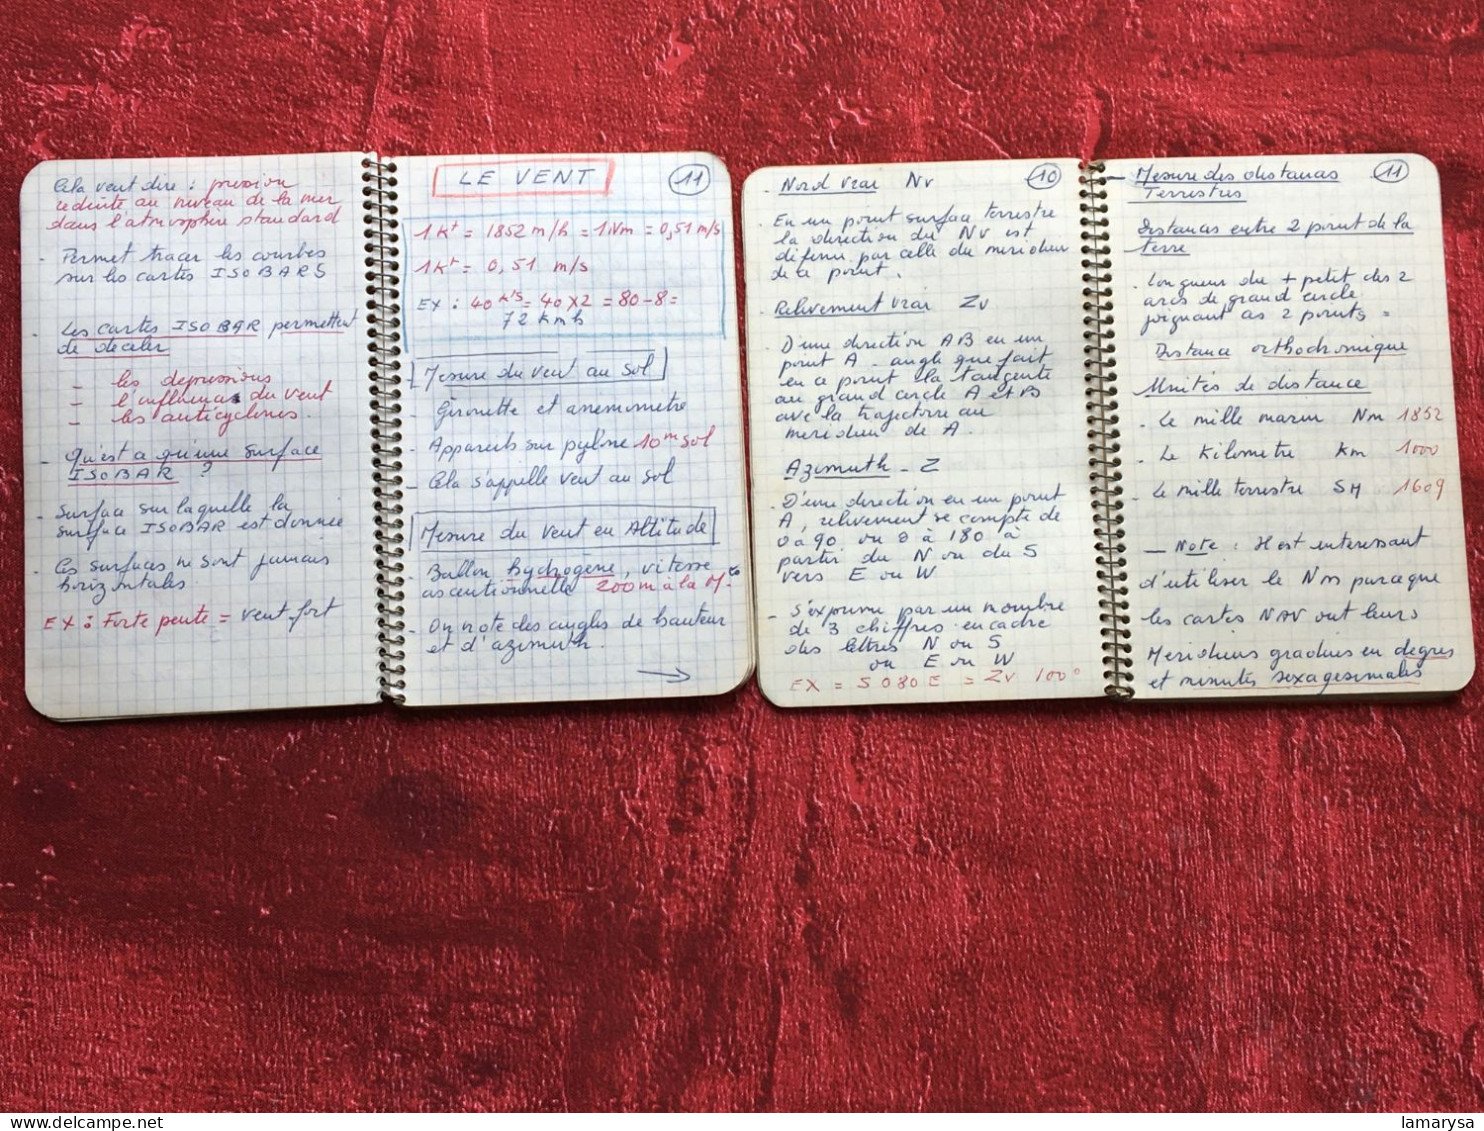 Cela veut dire : pression
reduite au niveau de la mer
dans l'atmosphère standard
- Permet tracer les courbes
sur les cartes ISOBARS
- Les cartes ISOBAR permettent
de deceler
- les depressions
- l'influence du vent
- les anticyclones.
- Qu'est a qu'une surface
ISOBAR ?
- Surface sur laquelle la
surface ISOBAR est donnée
- Ces surfaces ne sont jamais
horizontales.
EX : Forte pente = vent fort
LE VENT
11
1 Kt = 1852 m/h = 1 Nm = 0,51 m/s
1 Kt = 0,51 m/s
EX : 40 Kts = 40 x 2 = 80 - 8 =
72 Kmh
Mesure du vent au sol
- Girouette et anemometre
- Appareils sur pylône 10 m sol
- Cela s'appelle vent au sol
Mesure du vent en Altitude
- Ballon hydrogène, vitesse
ascentionnelle 200 m à la M.
- On note des angles de hauteur
et d'azimuth.
- Nord vrai Nv
10
En un point surface terrestre
la direction du NV est
définie par celle du meridien
de ce point.
- Relivement vrai Zv
- D'une direction AB en un
point A - angle que fait
en ce point la tangente
au grand cercle A et B
avec la trajectoire au
meridien de A.
Azimuth - Z
- D'une direction en un point
A, relivement se compte de
0 a 90 ou 0 à 180° à
partir du N ou du S
vers E ou W
- S'exprime par un nombre
de 3 chiffres encadré
des lettres N ou S
ou E ou W
EX = S 080 E = Zv 100°
- Mesure des distances
Terrestres
11
Distances entre 2 point de la
terre
- Longueur du + petit des 2
arcs de grand cercle
joignant ces 2 points =
Distance orthodromique
Unités de distance
- Le mille marin Nm 1852
- Le Kilometre Km 1000
- Le mille terrestre SM 1609
- Note : Il est interessant
d'utiliser le Nm parce que
les cartes NAV ont leurs
Meridiens gradués en degres
et minutes sexagesimales
lamarysa